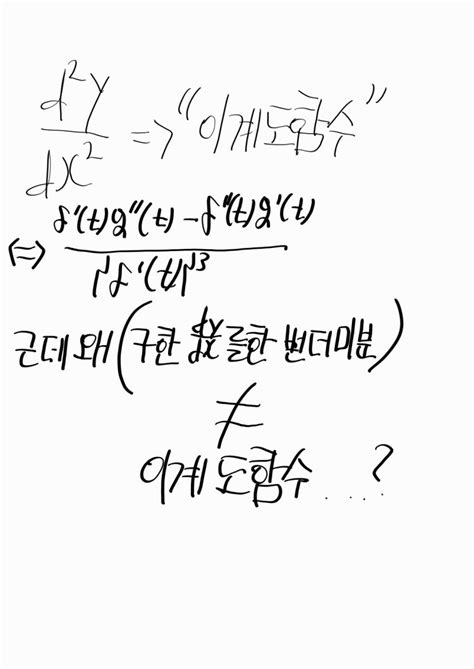 d²y/dx² => "이계도함수"
<=> f'(t)g''(t) - f''(t)g'(t) / {f'(t)}³
근데 왜 (구한 dy/dx를 한 번 더 미분)
≠
이계 도함수 ....?